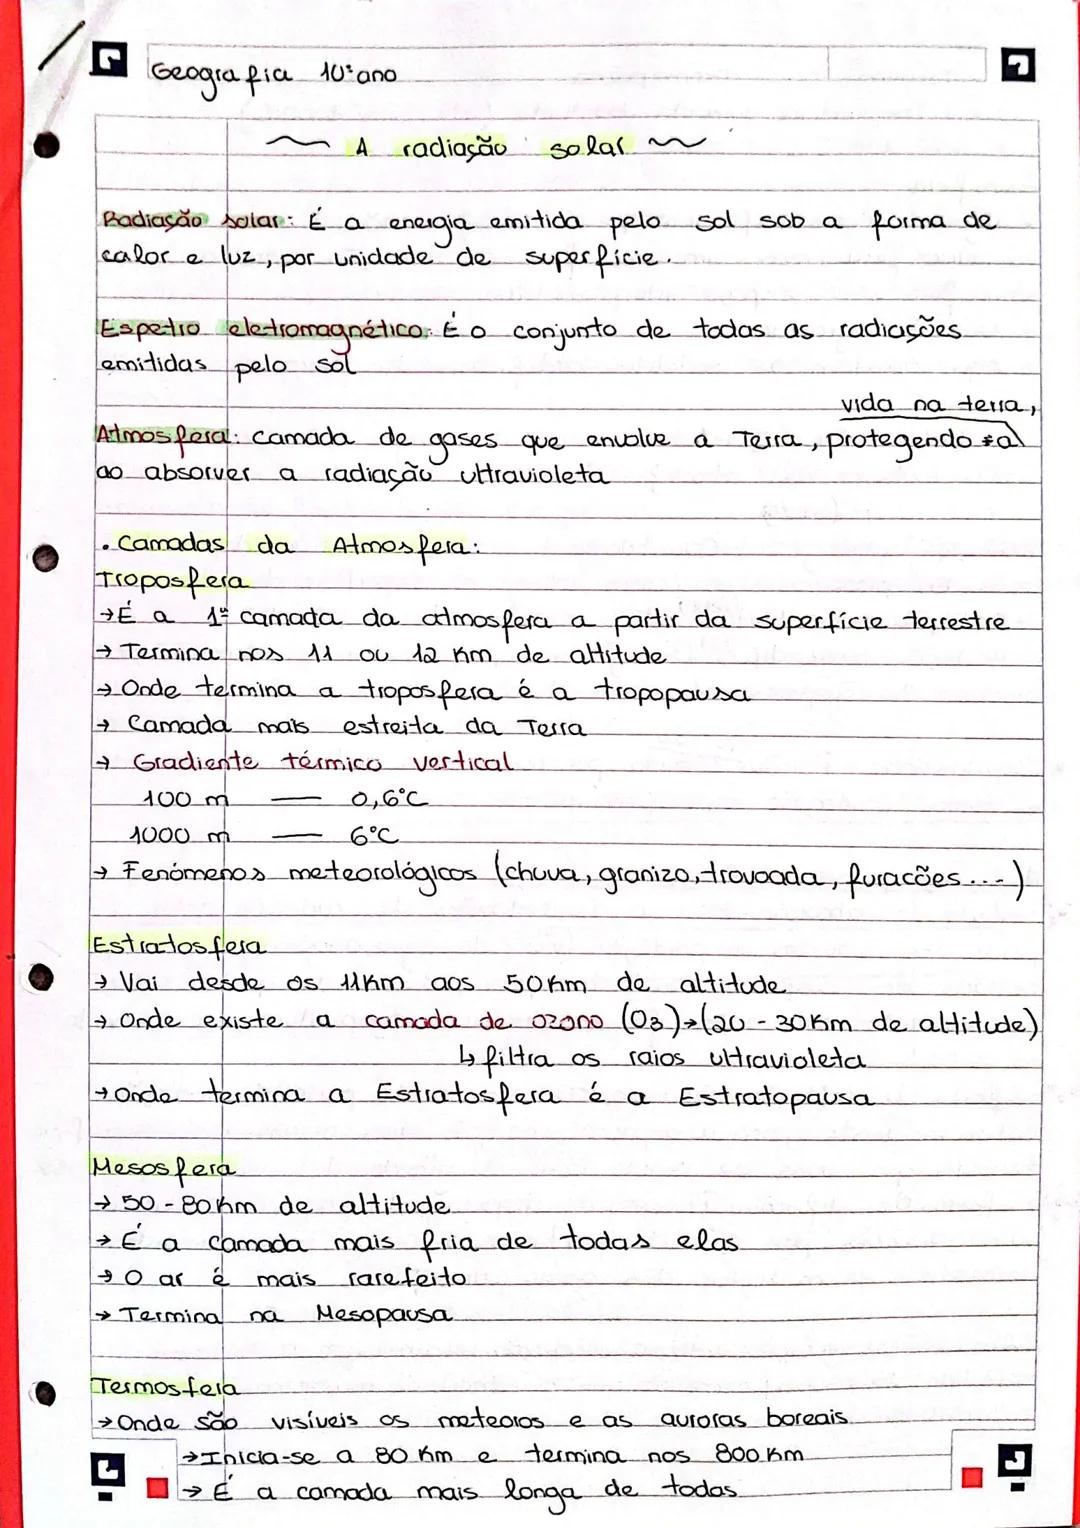 Geografia 10º ano
~ A radiação solar ~
Radiação solar: É a energia emitida pelo sol sob a forma de
calor e luz, por unidade de superfície.
Espetro eletromagnético: É o conjunto de todas as radiações
emitidas pelo sol
vida na terra,
Atmosfera: camada de gases que envolve a Terra, protegendo a
ao absorver a radiação ultravioleta
. Camadas da Atmosfera:
Troposfera
→ É a 1ª camada da atmosfera a partir da superfície terrestre
→ Termina nos 11 ou 12 Km de altitude
→ Onde termina a troposfera é a tropopausa
→ Camada mais estreita da Terra
→ Gradiente térmico vertical
100 m — 0,6°C
1000 m — 6°C
→ Fenómenos meteorológicos (chuva, granizo, trovoada, furacões...)
Estratosfera
→ Vai desde os 11Km aos 50Km de altitude
→ Onde existe a camada de ozono (O3)→(20 - 30Km de altitude)
↳ filtra os raios ultravioleta
→ Onde termina a Estratosfera é a Estratopausa
Mesosfera
→ 50 - 80Km de altitude
→ É a camada mais fria de todas elas
→ O ar é mais rarefeito
→ Termina na Mesopausa
Termosfera
→ Onde são visíveis os meteoros e as auroras boreais
→ Inicia-se a 80 Km e termina nos 800 Km
→ É a camada mais longa de todas